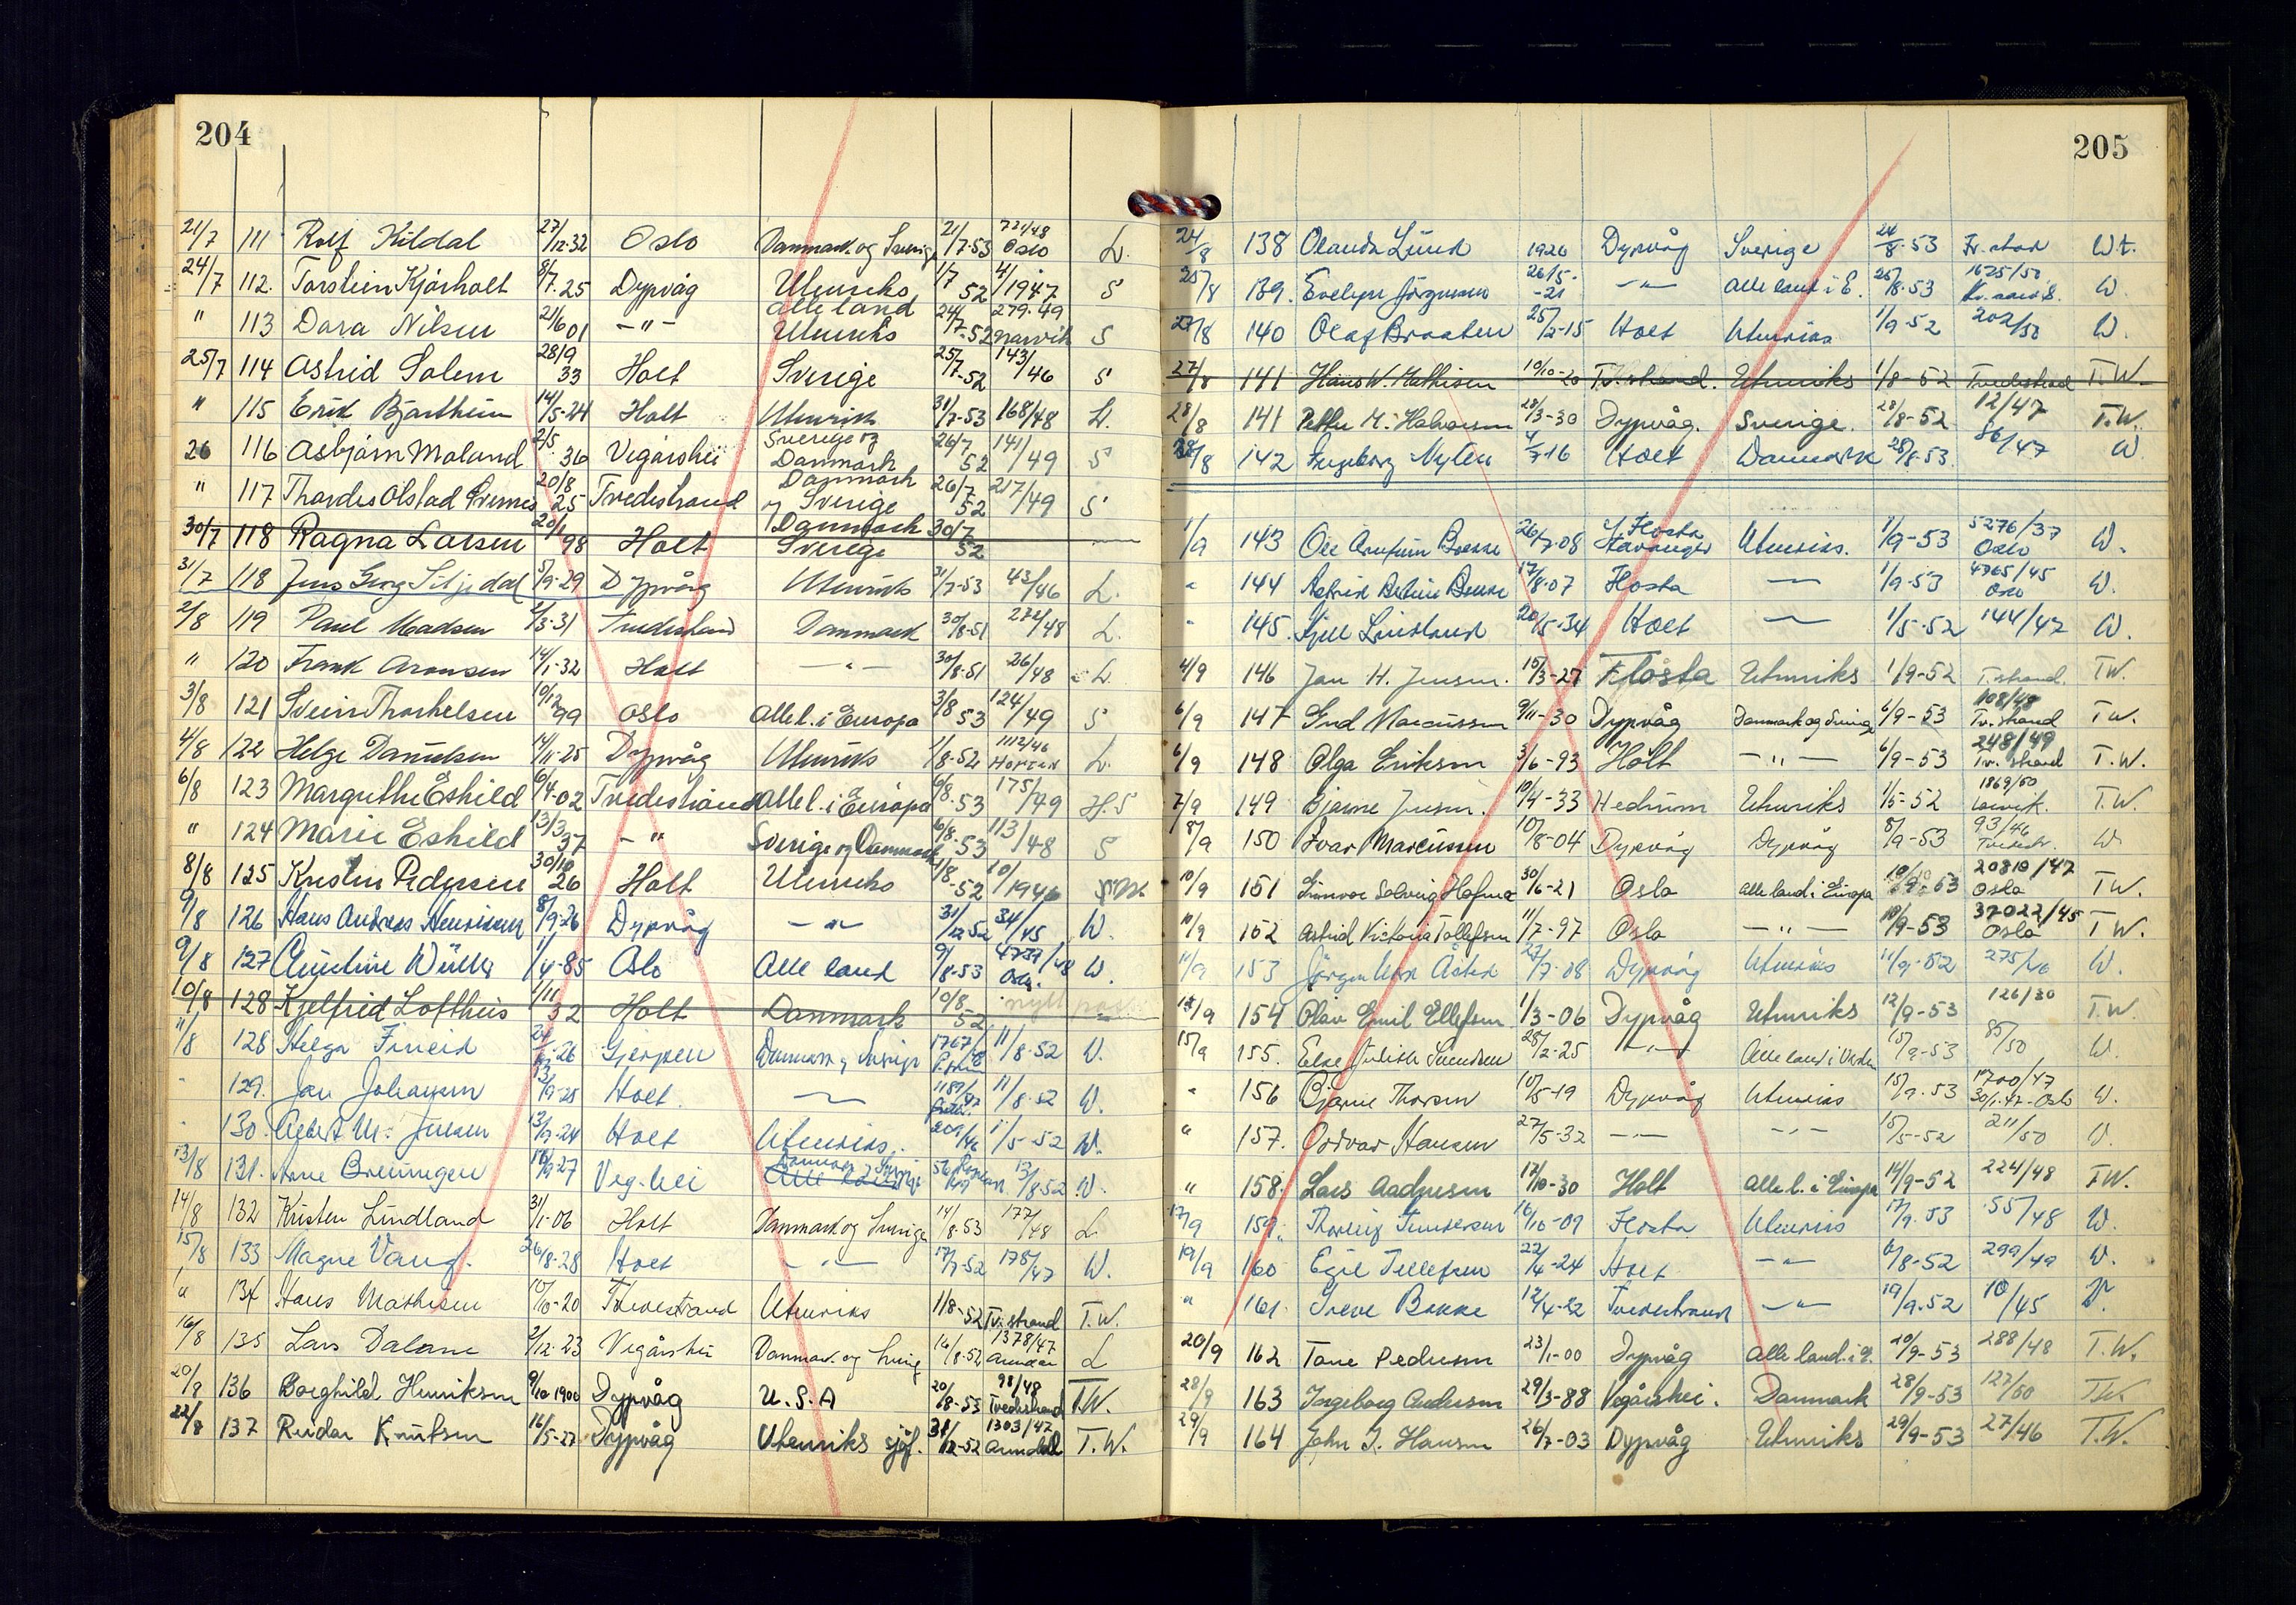 204
21/7 111 Rolf Kildal 27/12-32 Oslo Danmark og Sverige 21/7-53 721/48 Oslo L.
24/7 112. Torstein Kjørholt 8/7.25 Dypvåg Utenriks 1/7 52 4/1947 S
" 113 Dora Nilsen 21/6 01 -"- Alle land Utenriks 24/7-52 279.49 Narvik S
25/7 114 Astrid Solem 28/9 33 Holt Sverige 25/7-52 143/46 S
" 115 Erik Bjortheim 14/5-24 Holt Utenrik 31/7-53 168/48 L.
26 116 Asbjørn Moland 2/5 36 Vegårshei Sverige og Danmark 26/7 52 141/49 S
" 117 Thordis Olstad 20/8 25 Tvedestrand Danmark og Sverige 26/7 52 217/49 S
30/7 118 Ragna Larsen 20/1 98 Holt Danmark Sverige 30/7 52
31/7 118 Jens Georg Siljedal 5/9-29 Dypvåg Utenriks 31/7-53 43/46 L.
2/8 119 Paul Madsen 2/3-31 Tvedestrand Danmark 30/8-51 272/48 L.
" 120 Frank Aronsen 14/1-32 Holt -"- 30/8-51 26/48 L.
3/8 121 Svein Thorkelsen 10/12 99 Oslo Alle l. i Europa 3/8 53 124/49 S
4/8 122 Helge Danielsen 14/11-25 Dypvåg Utenriks 1/8-52 1112/46 Horten L.
6/8 123 Margrethe Eskild 6/4-02 Tvedestrand Alle l. i Europa 6/8.53 175/49 H.S
" 124 Marie Eskild 13/3 37 -"- Sverige og Danmark 6/8.53 113/48 S
8/8 125 Kristen Pedersen 30/10 26 Holt Utenriks 1/8.52 10/1946
9/8 126 Hans Andreas Henriksen 8/9-26 Dypvåg -"- 31/12-52 34/45 W.
9/8 127 1/4-85 Oslo Alle land 9/8-53 4739/48 Oslo. W.
10/8 128 Kjelfrid Lofthus 1/11 32 Holt Danmark 10/8 52 nytt pass
11/8 128 Helga Fineid 26 Gjerpen Danmark og Sverige 1767/ 11/8-52 W.
" 129. Jan Johansen 13/9-25 Holt. — 1189/47 11/8-52 W.
" 130. Albert M. Jensen 13/9-24 Holt Utenriks. 209/46 1/5-52 W.
13/8 131. Arne Breiungen 16/9-27 Veg.hei Danmark Sverige Alle land 13/8-52 W.
14/8 132 Kristen Lindland 31/1-06 Holt Danmark og Sverige 14/8-53 177/48 L
15/8 133 Magne Vang. 26/8-28 Holt -"- 17/7-52 178/47 W.
" 134 Hans Mathisen 10/10-20 Tvedestrand Utenriks 1/8-52 Tv.strand T.W.
16/8 135 Lars Dalane 2/12-23 Vegårshei Danmark og Sverig 16/8-52 1378/47 Arendal L
20/8 136 Borghild Henriksen 9/10 1900 Dypvåg U.S.A 20/8-53 98/48 Tvedestrand T.W.
22/8 137 Reidar Knutsen 16/5-27 Dypvåg Utenriks sjøf. 31/12-52 1303/47 Arendal T.W.
205
24/8 138 Olanda Lund 1920 Dypvåg Sverige 24/8-53 Fr.stad W.
25/8 139. Evelyn Jørgensen 26/5-21 -"- Alle land i E. 25/8-53 1625/50 Kr.sand S. W.
27/8 140 Olaf Braaten 25/2-15 Holt Utenriks 1/9-52 202/50 W.
27/8 141 Hans W. Mathisen 10/10-20 Tv.strand. Utenriks 1/8-52 Tvedestrand T.W.
28/8 141 Petter M. Halvorsen 28/3-30 Dypvåg. Sverige. 28/8-52 12/47 T.W.
28/8 142 Ingeborg Nylen 4/7-16 Holt Danmark 28/8-53. 86/47 W
1/9 143 Ole Arnfinn Bakke 26/7-08 Flosta Stavanger Utenriks. 1/9-53 5276/37 Oslo W.
" 144 Astrid Bakke 17/8-07 Flosta — 1/9-53 4765/45 Oslo W.
" 145. Kjell Lindland 20/5-34 Holt — 1/5-52 144/47 W.
4/9 146 Jan H. Jensen. 15/3-27 Flosta Utenriks 1/9-52 T.strand. T.W.
6/9 147 Gud Marcussen 9/11-30 Dypvåg Danmark og Sverige 6/9-53 108/48 Tv.strand T.W.
6/9 148 Olga Eriksen 3/6-93 Holt -"- 6/9-53 248/49 Tv.strand T.W.
7/9 149 Bjarne Jensen. 10/4-33 Hedrum Utenriks 1/5-52 1869/50 Larvik. T.W.
8/9 150 Ivar Marcussen 10/8-04 Dypvåg Dypvåg 8/9-53 93/46 W.
10/9 151 Solveig 30/6-21 Oslo Alle land i Europa 10/9-53 20810/47 Oslo T.W.
10/9 152 Astrid Victoria Tollefsen 11/7-97 Oslo -"- 10/9-53 37022/45 Oslo T.W.
11/9 153 Jørgen 27/7-08 Dypvåg Utenriks 11/9-52 275/46 W.
12/9 154 Olav Emil Ellefsen 1/3-06 Dypvåg Utenriks 12/9-53 126/50 T.W.
15/9 155. Else Judith Svendsen 28/2-25 -"- Alle land i Verden 15/9-53 85/50 W.
" 156 Bjarne Thorsen 10/5-19 Dypvåg Utenriks 15/9-53 1700/47 30/1-47-Oslo W.
" 157. Oddvar Hansen 27/5-32 -"- -"- 15/5-52 211/50 W.
" 158. Lars Aadnesen 17/10-30 Holt Alle l. i Europa 14/9-52 224/48 T.W.
17/9 159. 16/10-09 Flosta Utenriks 17/9-53 55/48 W.
19/9 160 Egil Tellefsen 22/4-24 Holt -"- 6/8-52 299/49 W.
" 161. Bakke 12/4-22 Tvedestrand -"- 19/9-52 10/45 W.
20/9 162 Tone Pedersen 23/1-00 Dypvåg Alle land. i E. 20/9-53 288/48 T.W.
28/9 163 Ingeborg Andersen 29/3-88 Vegårshei. Danmark 28/9-53 127/50 T.W.
29/9 164 John I. Hansen 26/7-03 Dypvåg Utenriks 29/9-53 27/46 T.W.